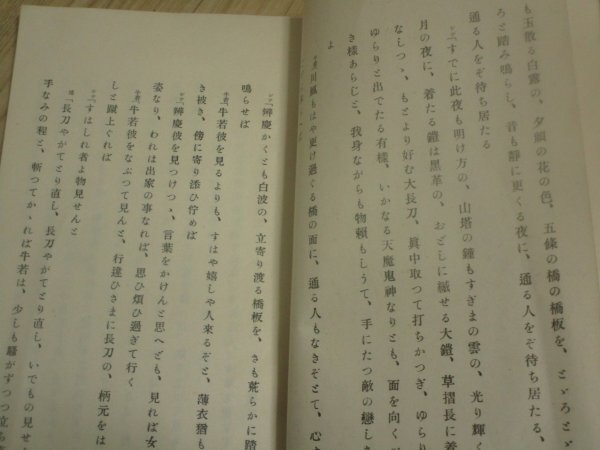 も玉散る白露の、夕顏の花の色、五條の橋の橋板を、とゞろとゞ
ろと踏み鳴らし、音も靜に更くる夜に、通る人をぞ待ち居たる、
通る人をぞ待ち居たる
すでに此夜も明け方の、山塔の鐘もすぎまの雲の、光り輝く
月の夜に、着たる鎧は黒革の、おどしに縅せる大鎧、草摺長に着
なしつゝ、もとより好む大長刀、眞中取つて打ちかつぎ、ゆらり
ゆらりと出でたる有樣、いかなる天魔鬼神なりとも、面を向く
き樣あらじと、我身ながらも物頼もしうて、手にたつ敵の戀しさ
よ
川風もはや更け過ぐる橋の面に、通る人もなきぞとて、心
辨慶かくとも白波の、立寄り渡る橋板を、さも荒らかに踏
鳴らせば
牛若彼を見るよりも、すはや嬉しや人來るぞと、薄衣猶も
き被き、傍に寄り添ひ佇めば
辨慶彼を見つけつゝ、言葉をかけんと思へども、見れば女
姿なり、われは出家の事なれば、思ひ煩ひ過ぎて行く
牛若彼をなぶつて見んと、行違ひさまに長刀の、柄元をは
しと蹴上ぐれば
すはしれ者よ物見せんと
長刀やがてとり直し、長刀やがてとり直し、いでもの見せ
手なみの程と、斬つてかゝれば牛若は、少しも騷がずつつ立ち